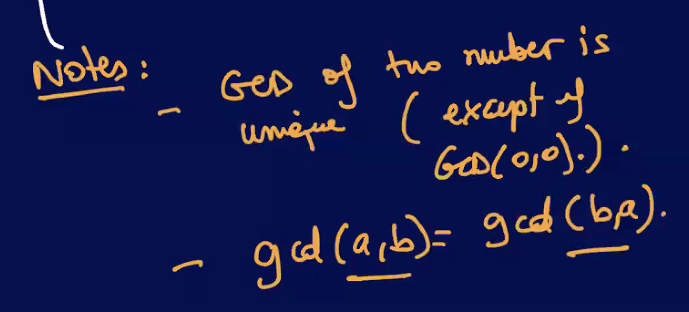 Notes:
- GCD of two number is
unique (except if
GCD(0,0).).
- gcd(a,b)= gcd(b,a).